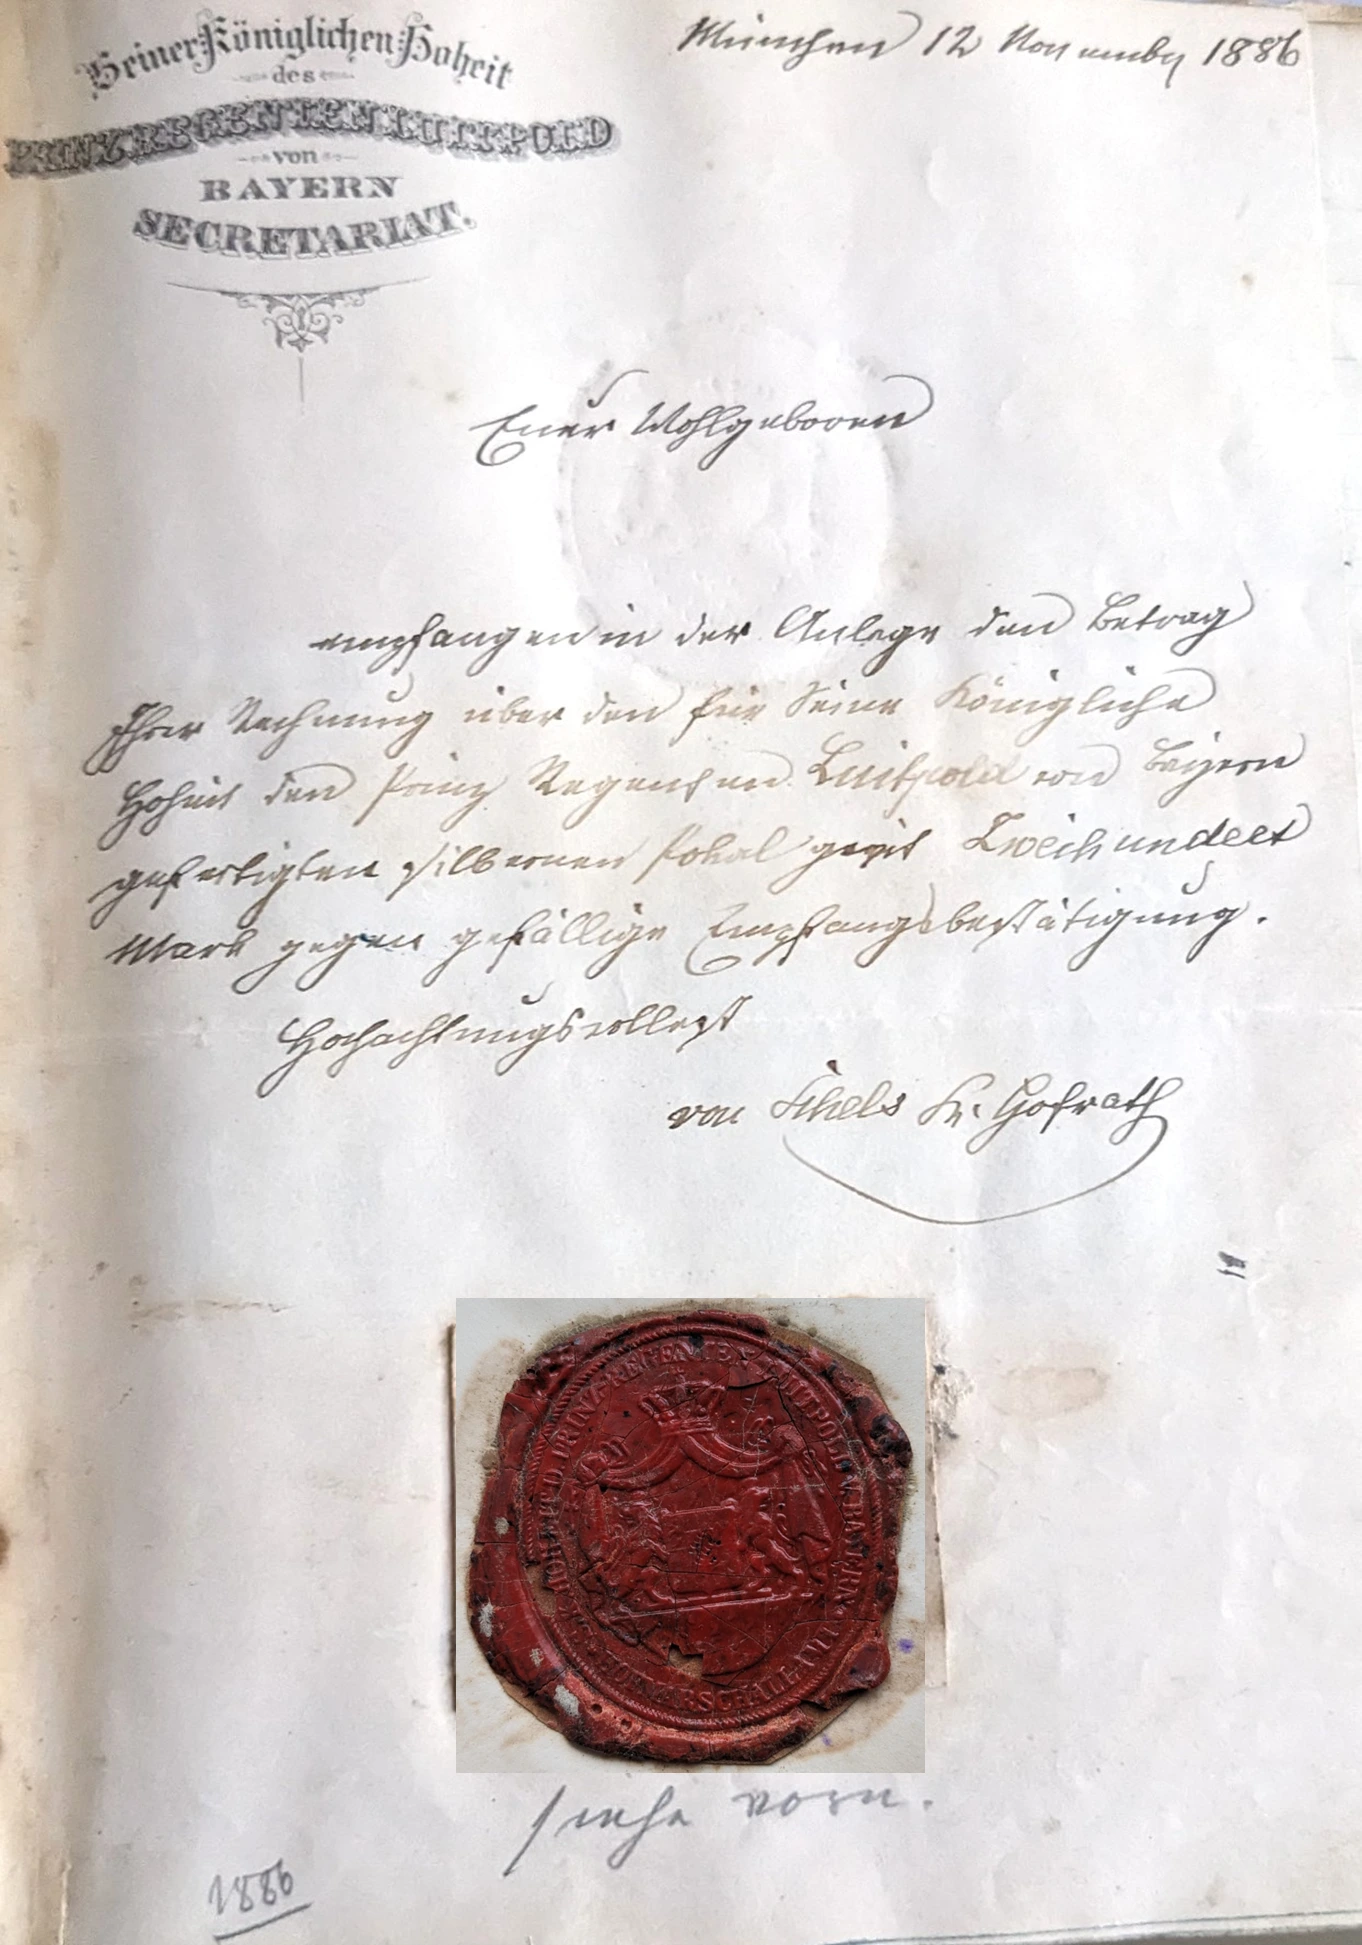 Seiner Königlichen Hoheit
des
PRINZREGENTEN LUITPOLD
von
BAYERN
SECRETARIAT.
München 12 November 1886
Euer Wohlgeboren
empfangen in der Anlage den Betrag
Ihrer Rechnung über den für Seine Königliche
Hoheit den Prinz Regenten Luitpold von Bayern
gefertigten silbernen Pokal mit Zweihundert
Mark gegen gefällige Empfangsbestätigung.
Hochachtungsvollest
von K. Hofrath
PRINZREGENTEN LUITPOLD V. BAYERN
siehe vorn.
1886